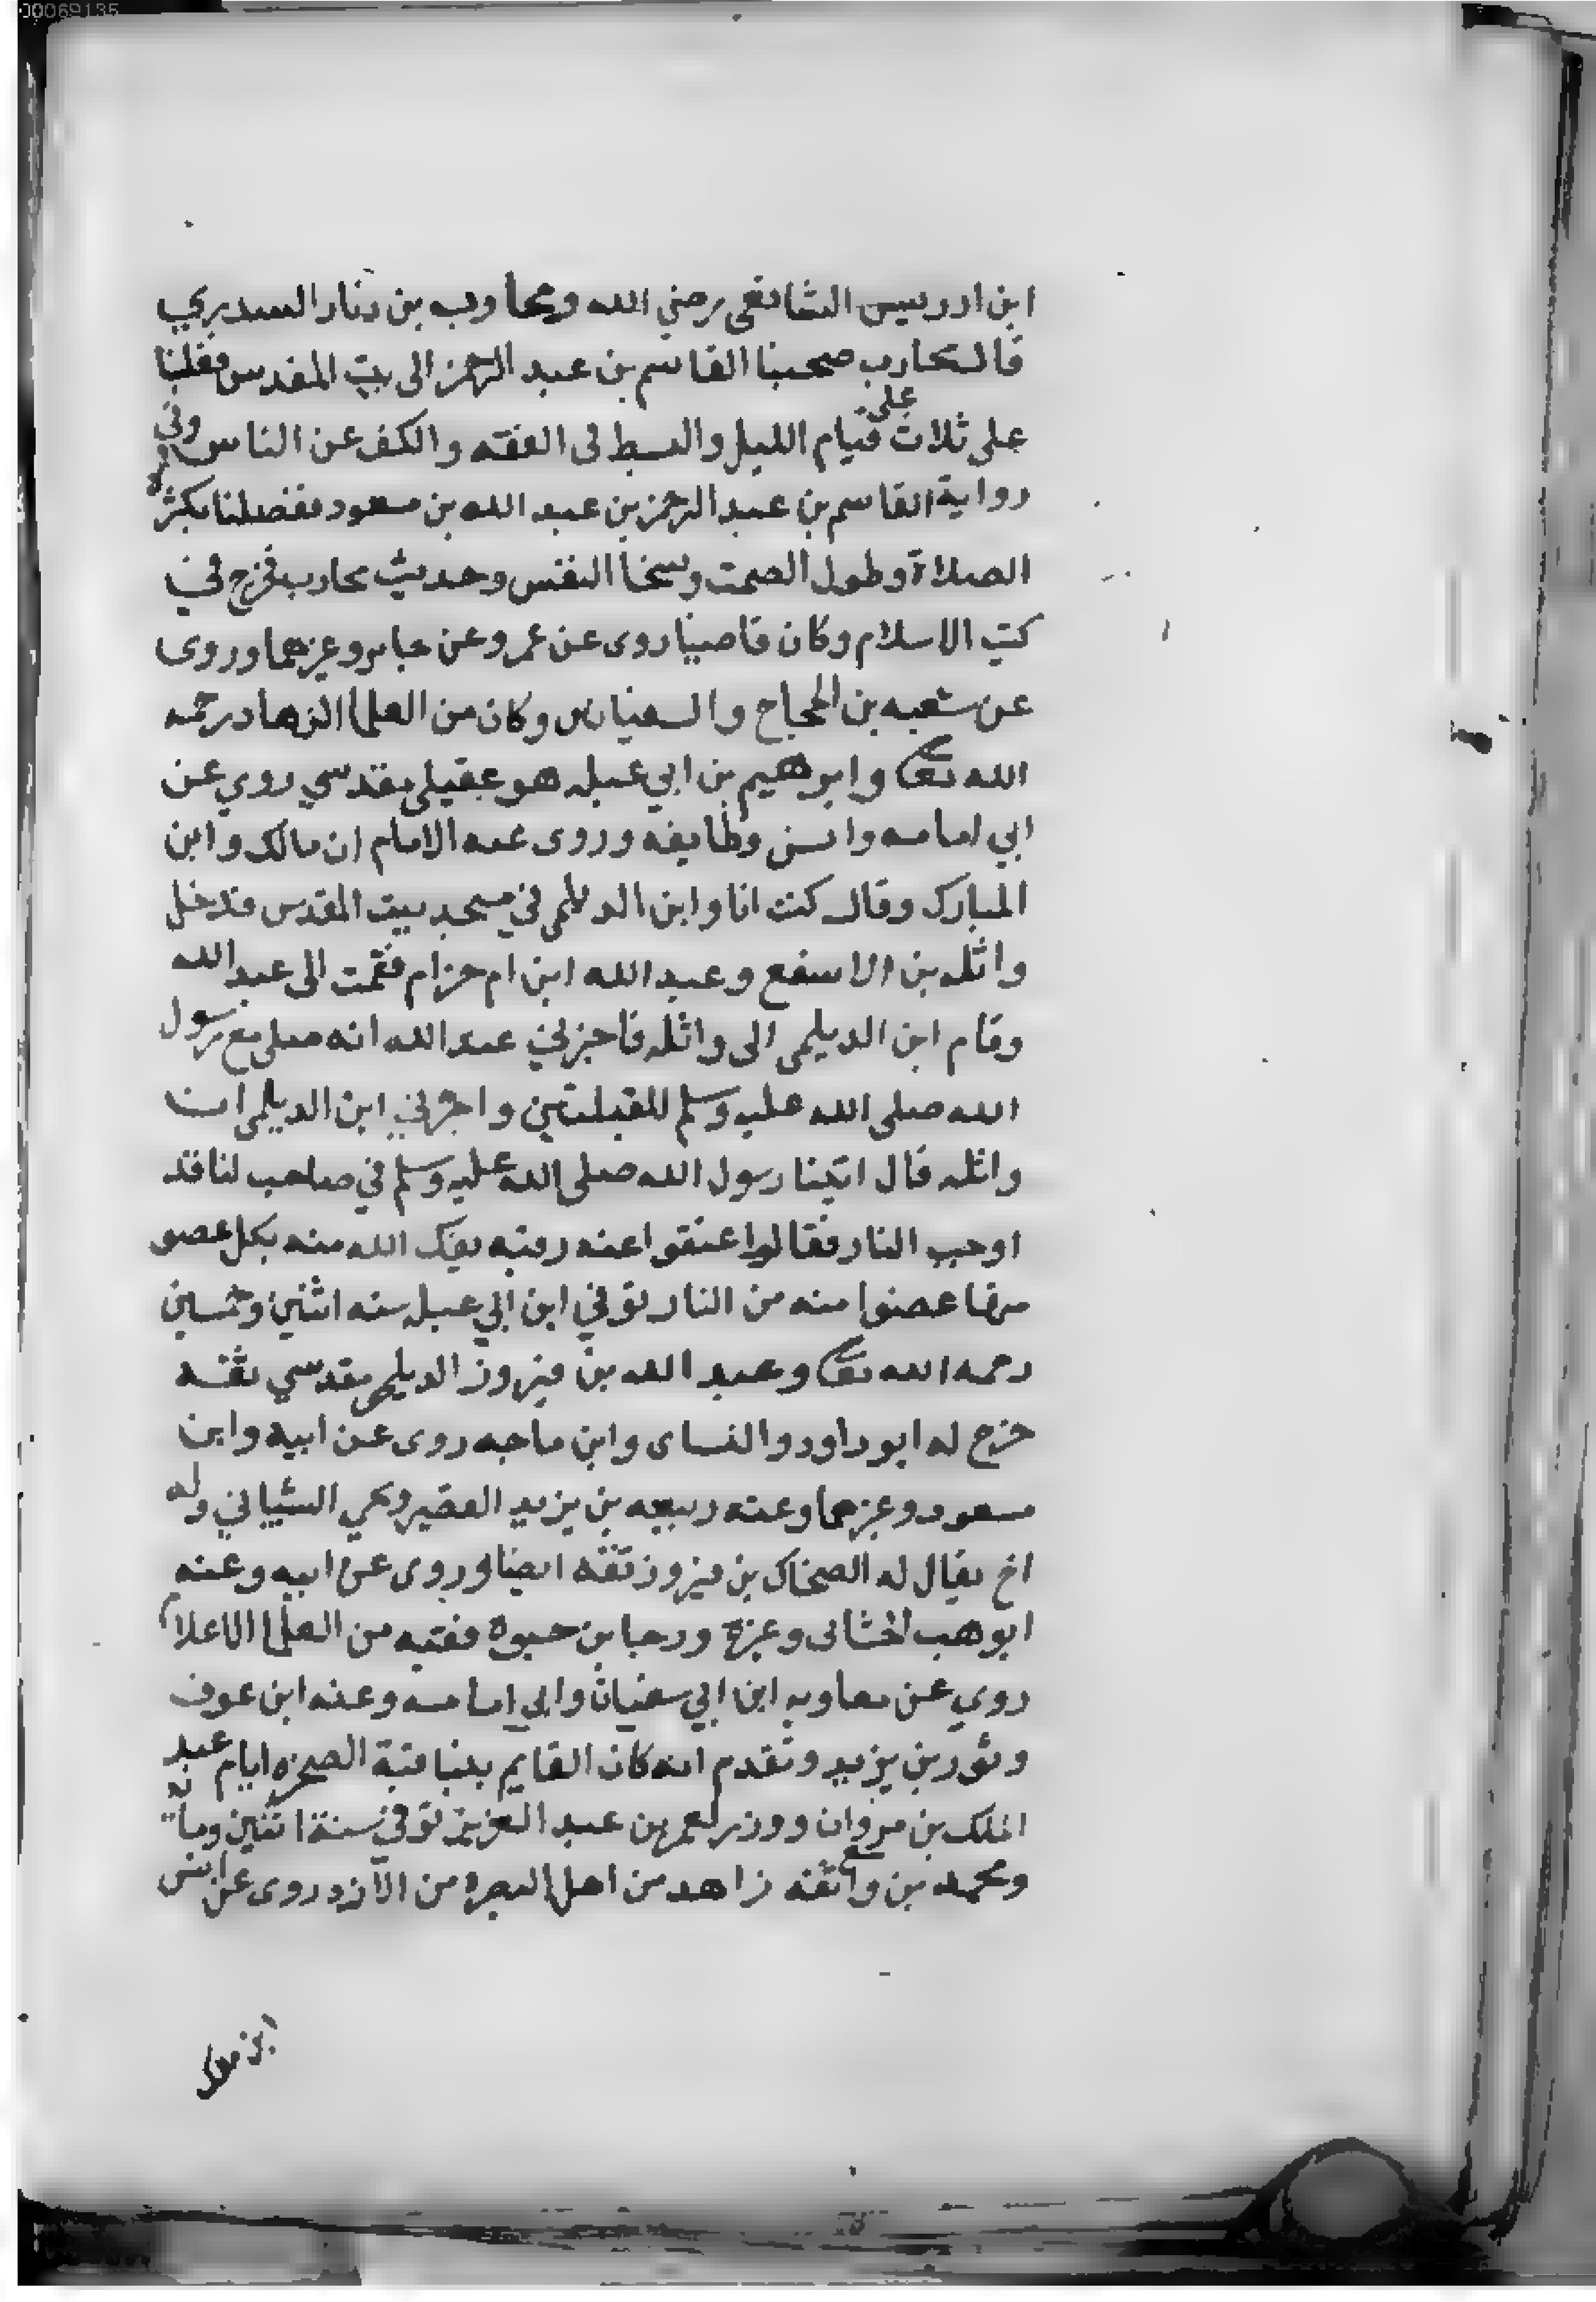 00069135
ابن ادريس الشافعى رضي الله ومحارب بن دثار السدوسي
قال محارب صحبنا القاسم بن عبد الرحمن الى بيت المقدس فغلبنا
على ثلاث على قيام الليل والبسط فى الفقه والكف عن الناس وفي
رواية القاسم بن عبد الرحمن بن عبد الله بن مسعود ففضلنا بكثرة
الصلاة وطول الصمت وسخا النفس وحديث محارب مخرج في
كتب الاسلام وكان قاضيا روى عن عمر وعن جابر وغيرهما وروى
عن شعبه بن الحجاج والسفيانان وكان من العلما الزهاد رحمه
الله تعالى وابرهيم بن ابي عبله هو عقيلى مقدسي روي عن
ابي امامه وانس وطايفه وروى عنه الامام ان مالك وابن
المبارك وقال كنت انا وابن الديلمى في مسجد بيت المقدس فدخل
واثله بن الاسقع وعبد الله ابن ام حزام فقمت الى عبد الله
وقام ابن الديلمى الى واثله فاخبرني عبد الله انه صلى مع رسول
الله صلى الله عليه وسلم للقبلتين واخبرني ابن الديلمى ان
واثله قال اتينا رسول الله صلى الله عليه وسلم في صاحب لنا قد
اوجب النار فقالوا اعتقوا عنه رقبه يفك الله منه بكل عضو
منها عضوا منه من النار توفي ابن ابي عبله سنه اثنين وخمسين
رحمه الله تعالى وعبد الله بن فيروز الديلمى مقدسي ثقه
خرج له ابو داود والنساى وابن ماجه روى عن ابيه وابن
مسعود وغيرهما وعنه ربيعه بن يزيد القصير ويحي الشيباني وله
اخ يقال له الضحاك بن فيروز ثقه ايضا وروى عن ابيه وعنه
ابو وهب الخشانى وغيره ورجا بن حيوة فقيه من العلما الاعلام
روي عن معاويه ابن ابي سفيان وابي امامه وعنه ابن عوف
وثور بن يزيد وتقدم انه كان القايم ببنا قبة الصخره ايام عبد
الملك بن مروان ووزر لعمر بن عبد العزيز توفي سنة اثنين ومائه
ومحمد بن واسع ثقه زاهد من اهل البصره من الازد روى عن انس
ابن مالك